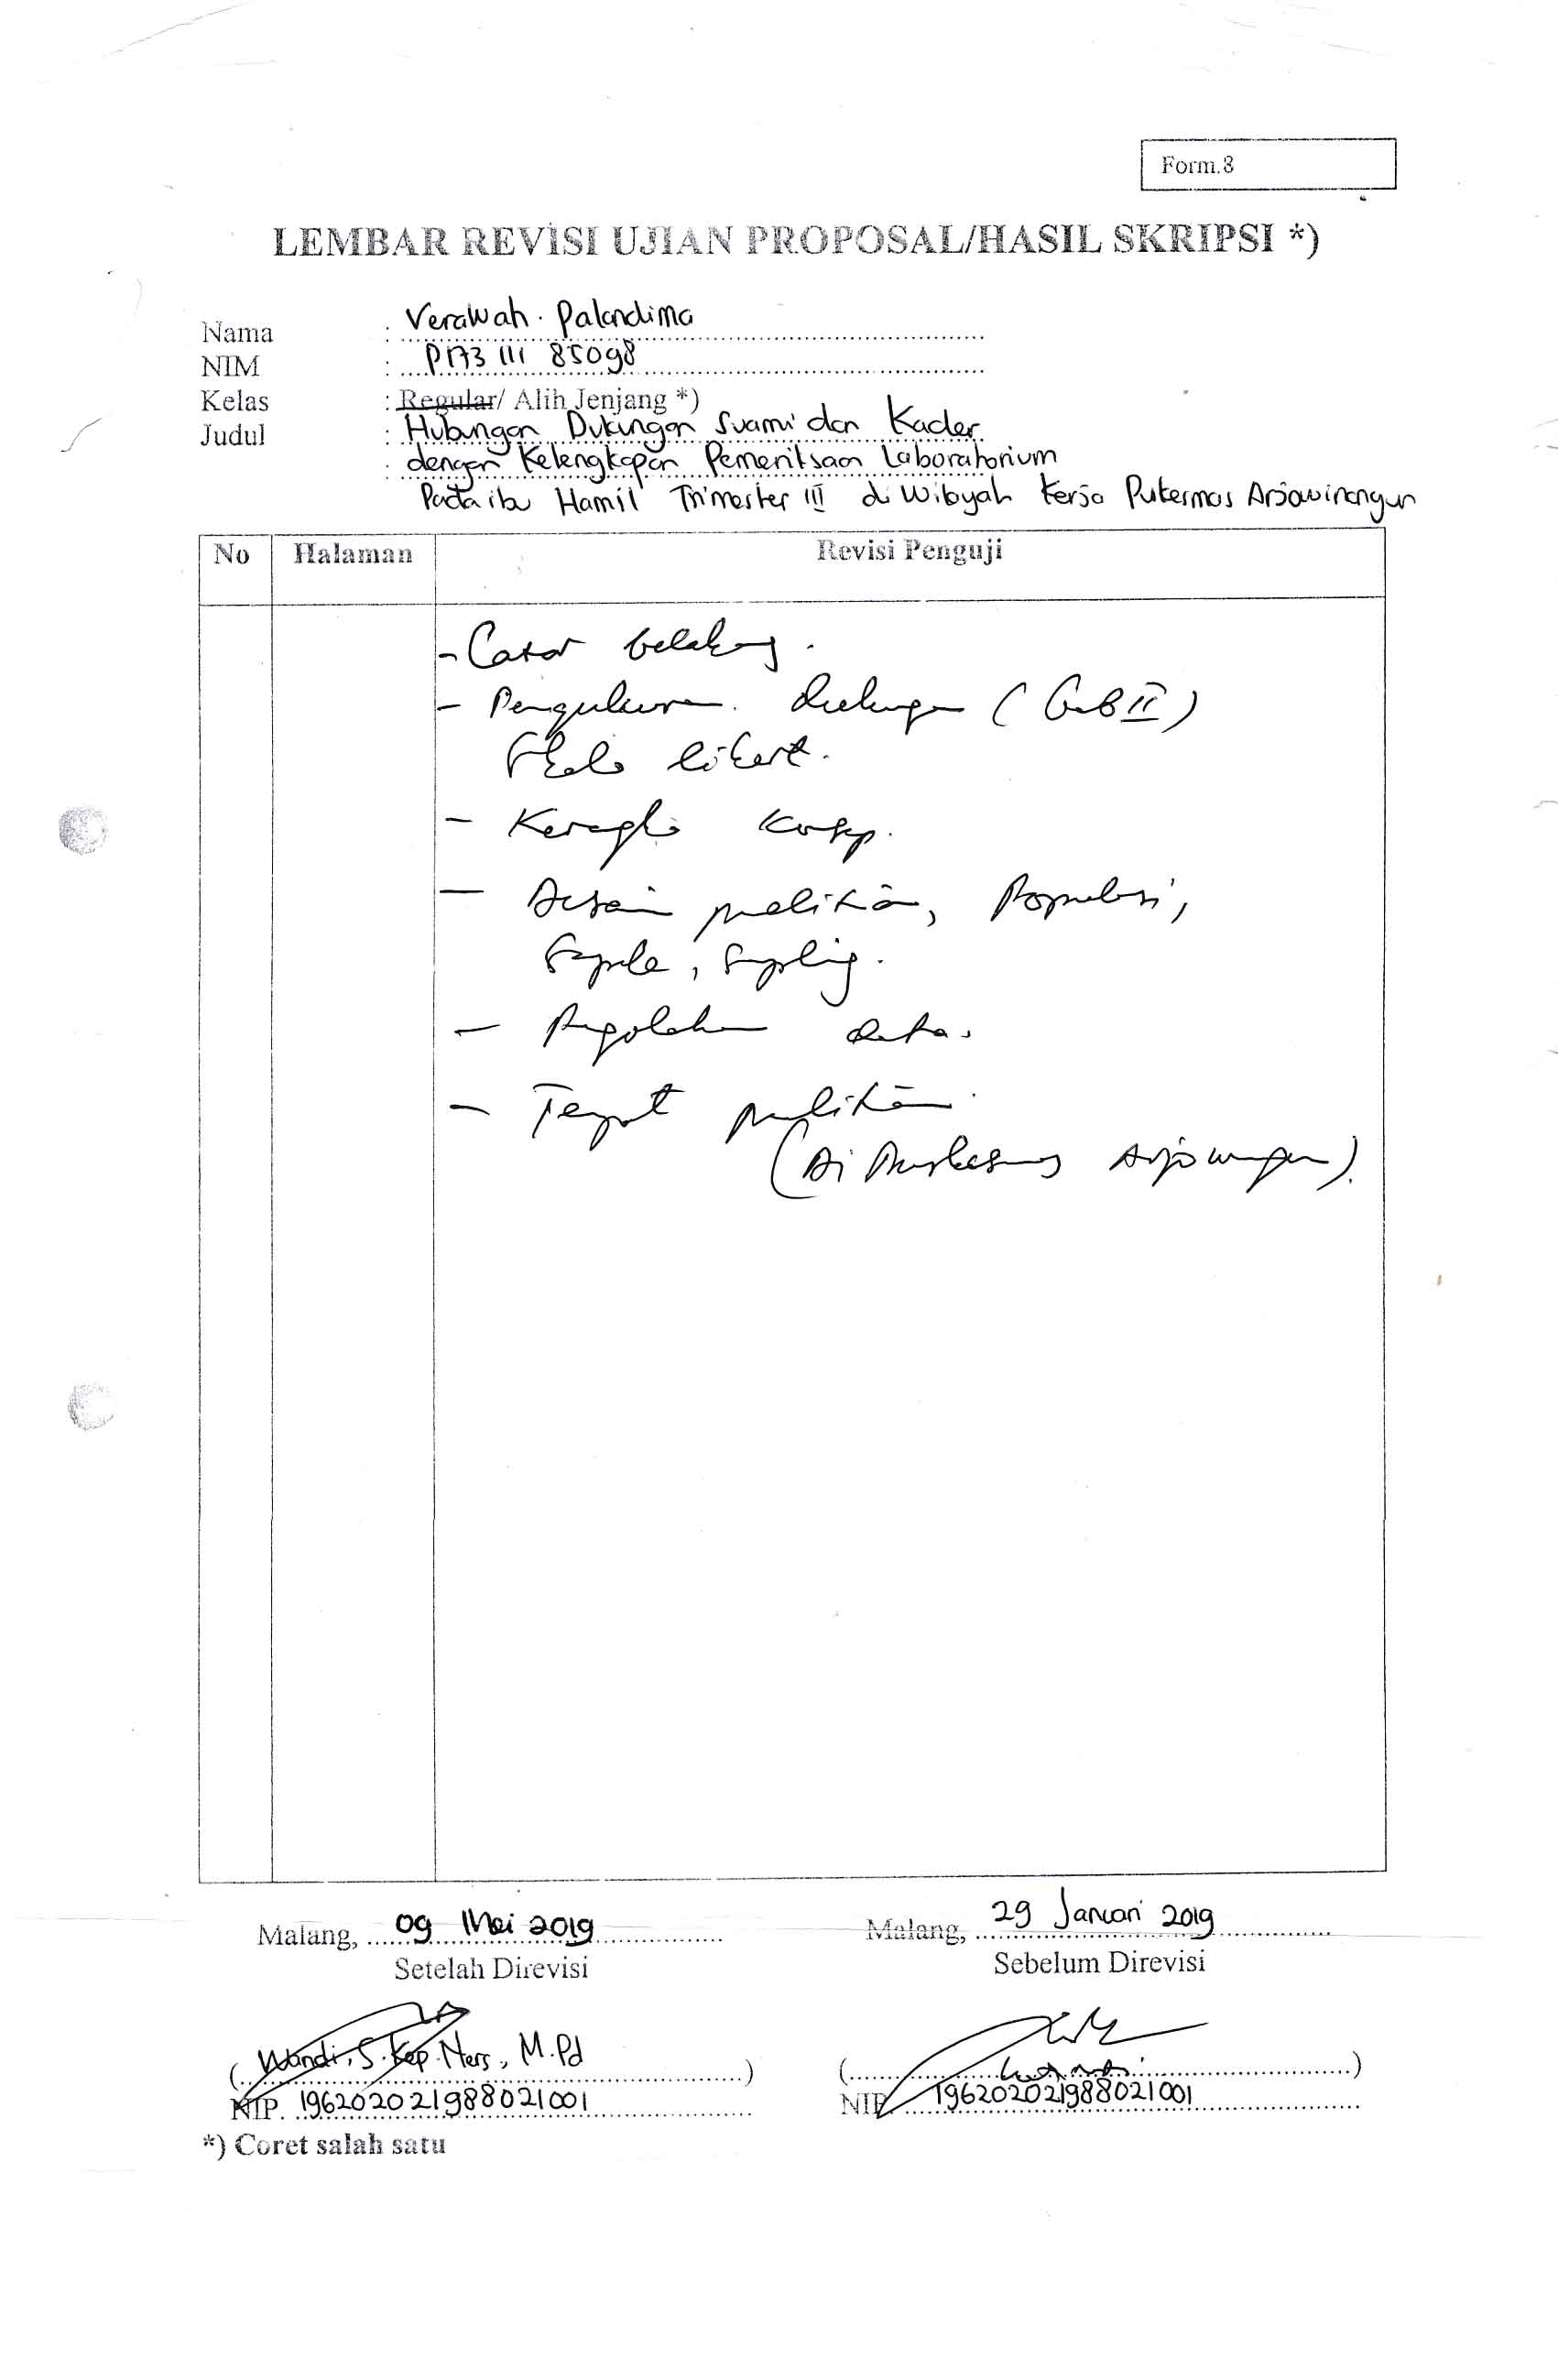 Form.8
LEMBAR REVISI UJIAN PROPOSAL/HASIL SKRIPSI *)
Nama : Verawati. Palandima
NIM : P173 111 85098
Kelas : Regular/ Alih Jenjang *)
Judul : Hubungan Dukungan Suami dan Kader
: dengan Kelengkapan Pemeriksaan Laboratorium
Pada ibu Hamil Trimester III di Wilayah Kerja Puskesmas Arjowinangun
No Halaman Revisi Penguji
- Latar belakang.
- Pengukuran dukungan (Bab II)
Skala likert.
- Kerangka konsep.
- Desain penelitian, Populasi,
Sampel, Sampling.
- Pengolahan data.
- Tempat penelitian.
(Di Puskesmas Arjowinangun).
Malang, 09 Mei 2019 Malang, 29 Januari 2019
Setelah Direvisi Sebelum Direvisi
(Wandi, S.Kep.Ners, M.Pd) ( )
NIP. 196202021988021001 NIP. 196202021988021001
*) Coret salah satu